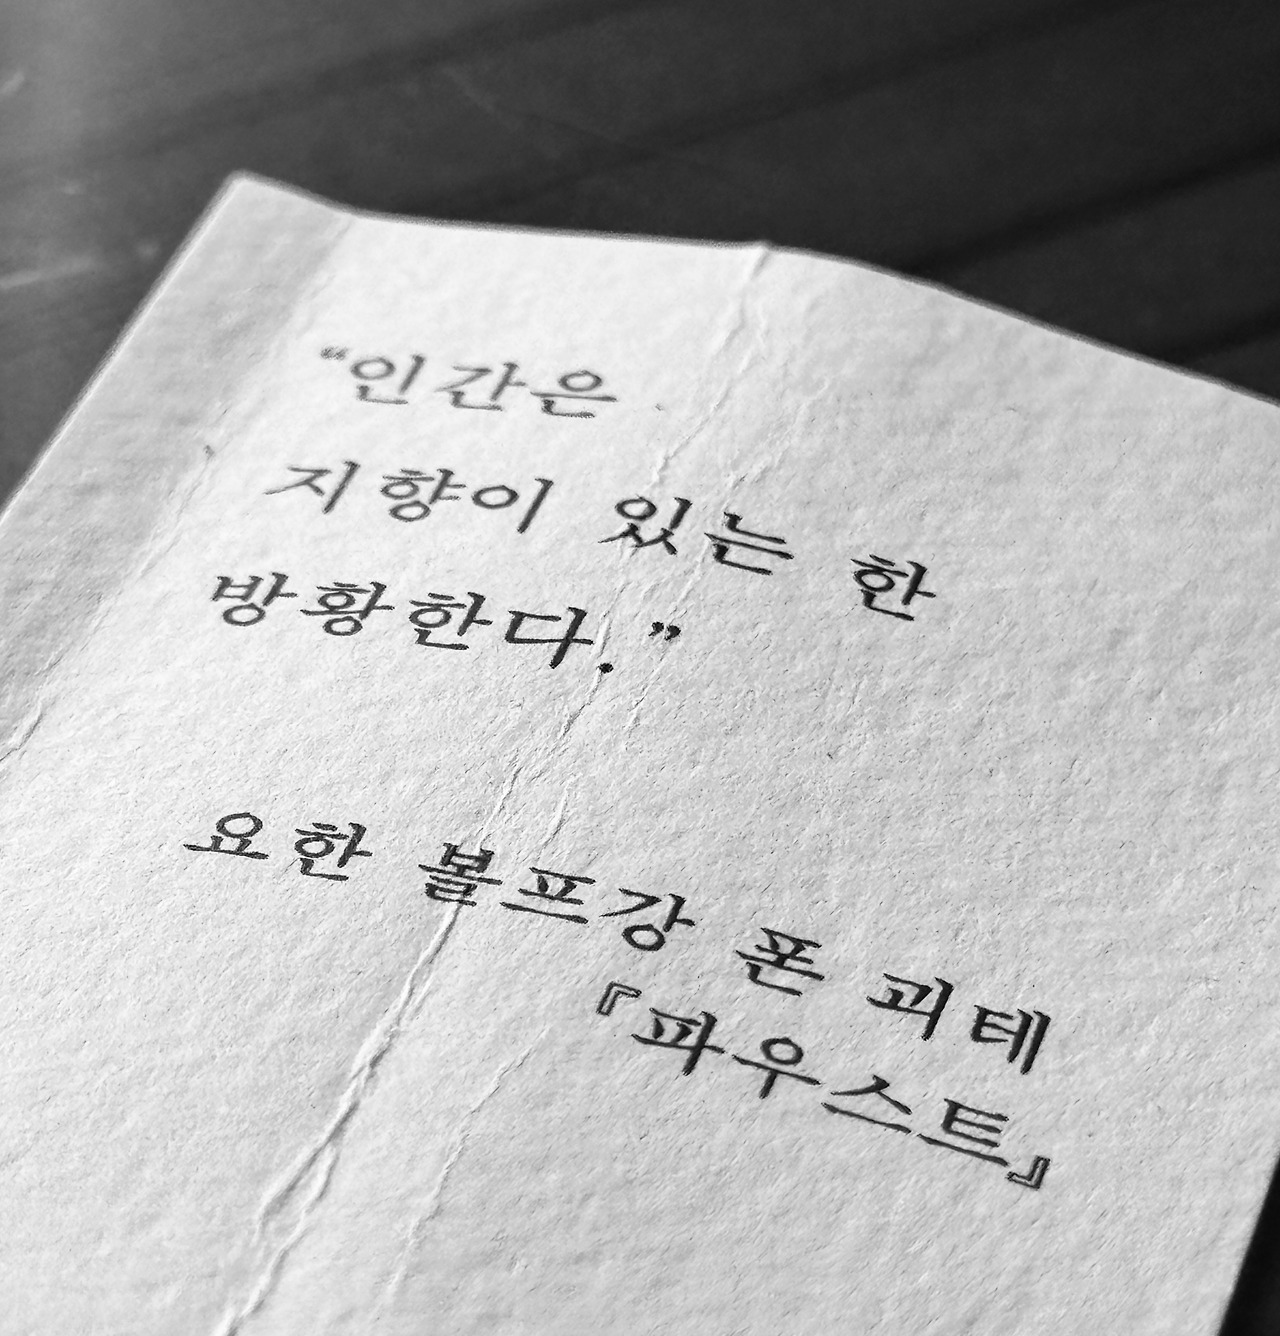 “인간은
지향이 있는 한
방황한다.”
요한 볼프강 폰 괴테
『파우스트』